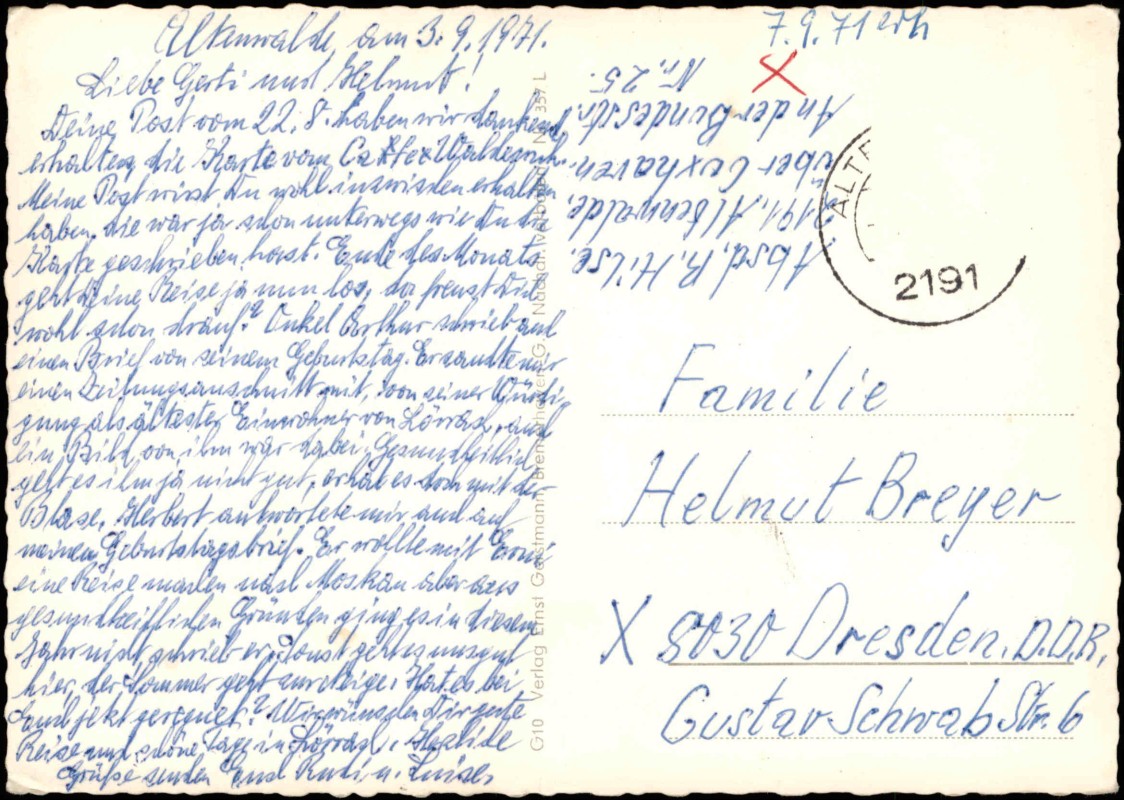 Altenwalde, am 3.9.1971.
Liebe Gerti und Helmut!
Deine Post vom 22.8. haben wir dankend
erhalten, die Karte vom
Meine Post wirst Du wohl inzwischen erhalten
haben, die war ja schon unterwegs wie Du die
Karte geschrieben hast. Ende des Monats
geht Deine Reise ja nun los, da freust Dich
wohl schon drauf? Onkel Arthur schrieb auch
einen Brief von seinem Geburtstag. Er sandte mir
einen Zeitungsausschnitt mit, von seiner Würdi-
gung als ältester Einwohner von Lörrach, auch
ein Bild von ihm war dabei. Gesundheitlich
geht es ihm ja nicht gut, er hat es doch mit der
Blase. Herbert antwortete mir auch auf
meinen Geburtstagsbrief. Er wollte mit Erni
eine Reise machen nach Moskau aber aus
gesundheitlichen Gründen ging es in diesem
Jahr nicht schrieb er. Sonst geht es uns gut
hier, der Sommer geht zur Neige. Hat es bei
Euch jetzt geregnet? Wir wünschen Dir gute
Reise und schöne Tage in Lörrach. Herzliche
Grüße senden Euch Rudi u. Luise.
G10 Verlag Ernst Gerstmann, Bremerhaven-G. Nachdr. verboten! Nr. 357 L
7.9.71
X
Absd. R. Hilse.
2191, Altenwalde,
über Cuxhaven.
An der Bundesstr.
Nr. 25.
ALTE
2191
Familie
Helmut Breyer
X 8030 Dresden. D.D.R.
Gustav Schwab Str. 6